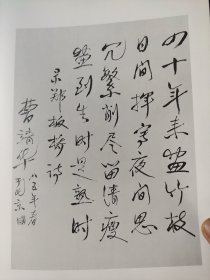 四十年来画竹枝
日间挥写夜间思
冗繁削尽留清瘦
画到生时是熟时
录郑板桥诗
曹靖华
八五年春
于北京